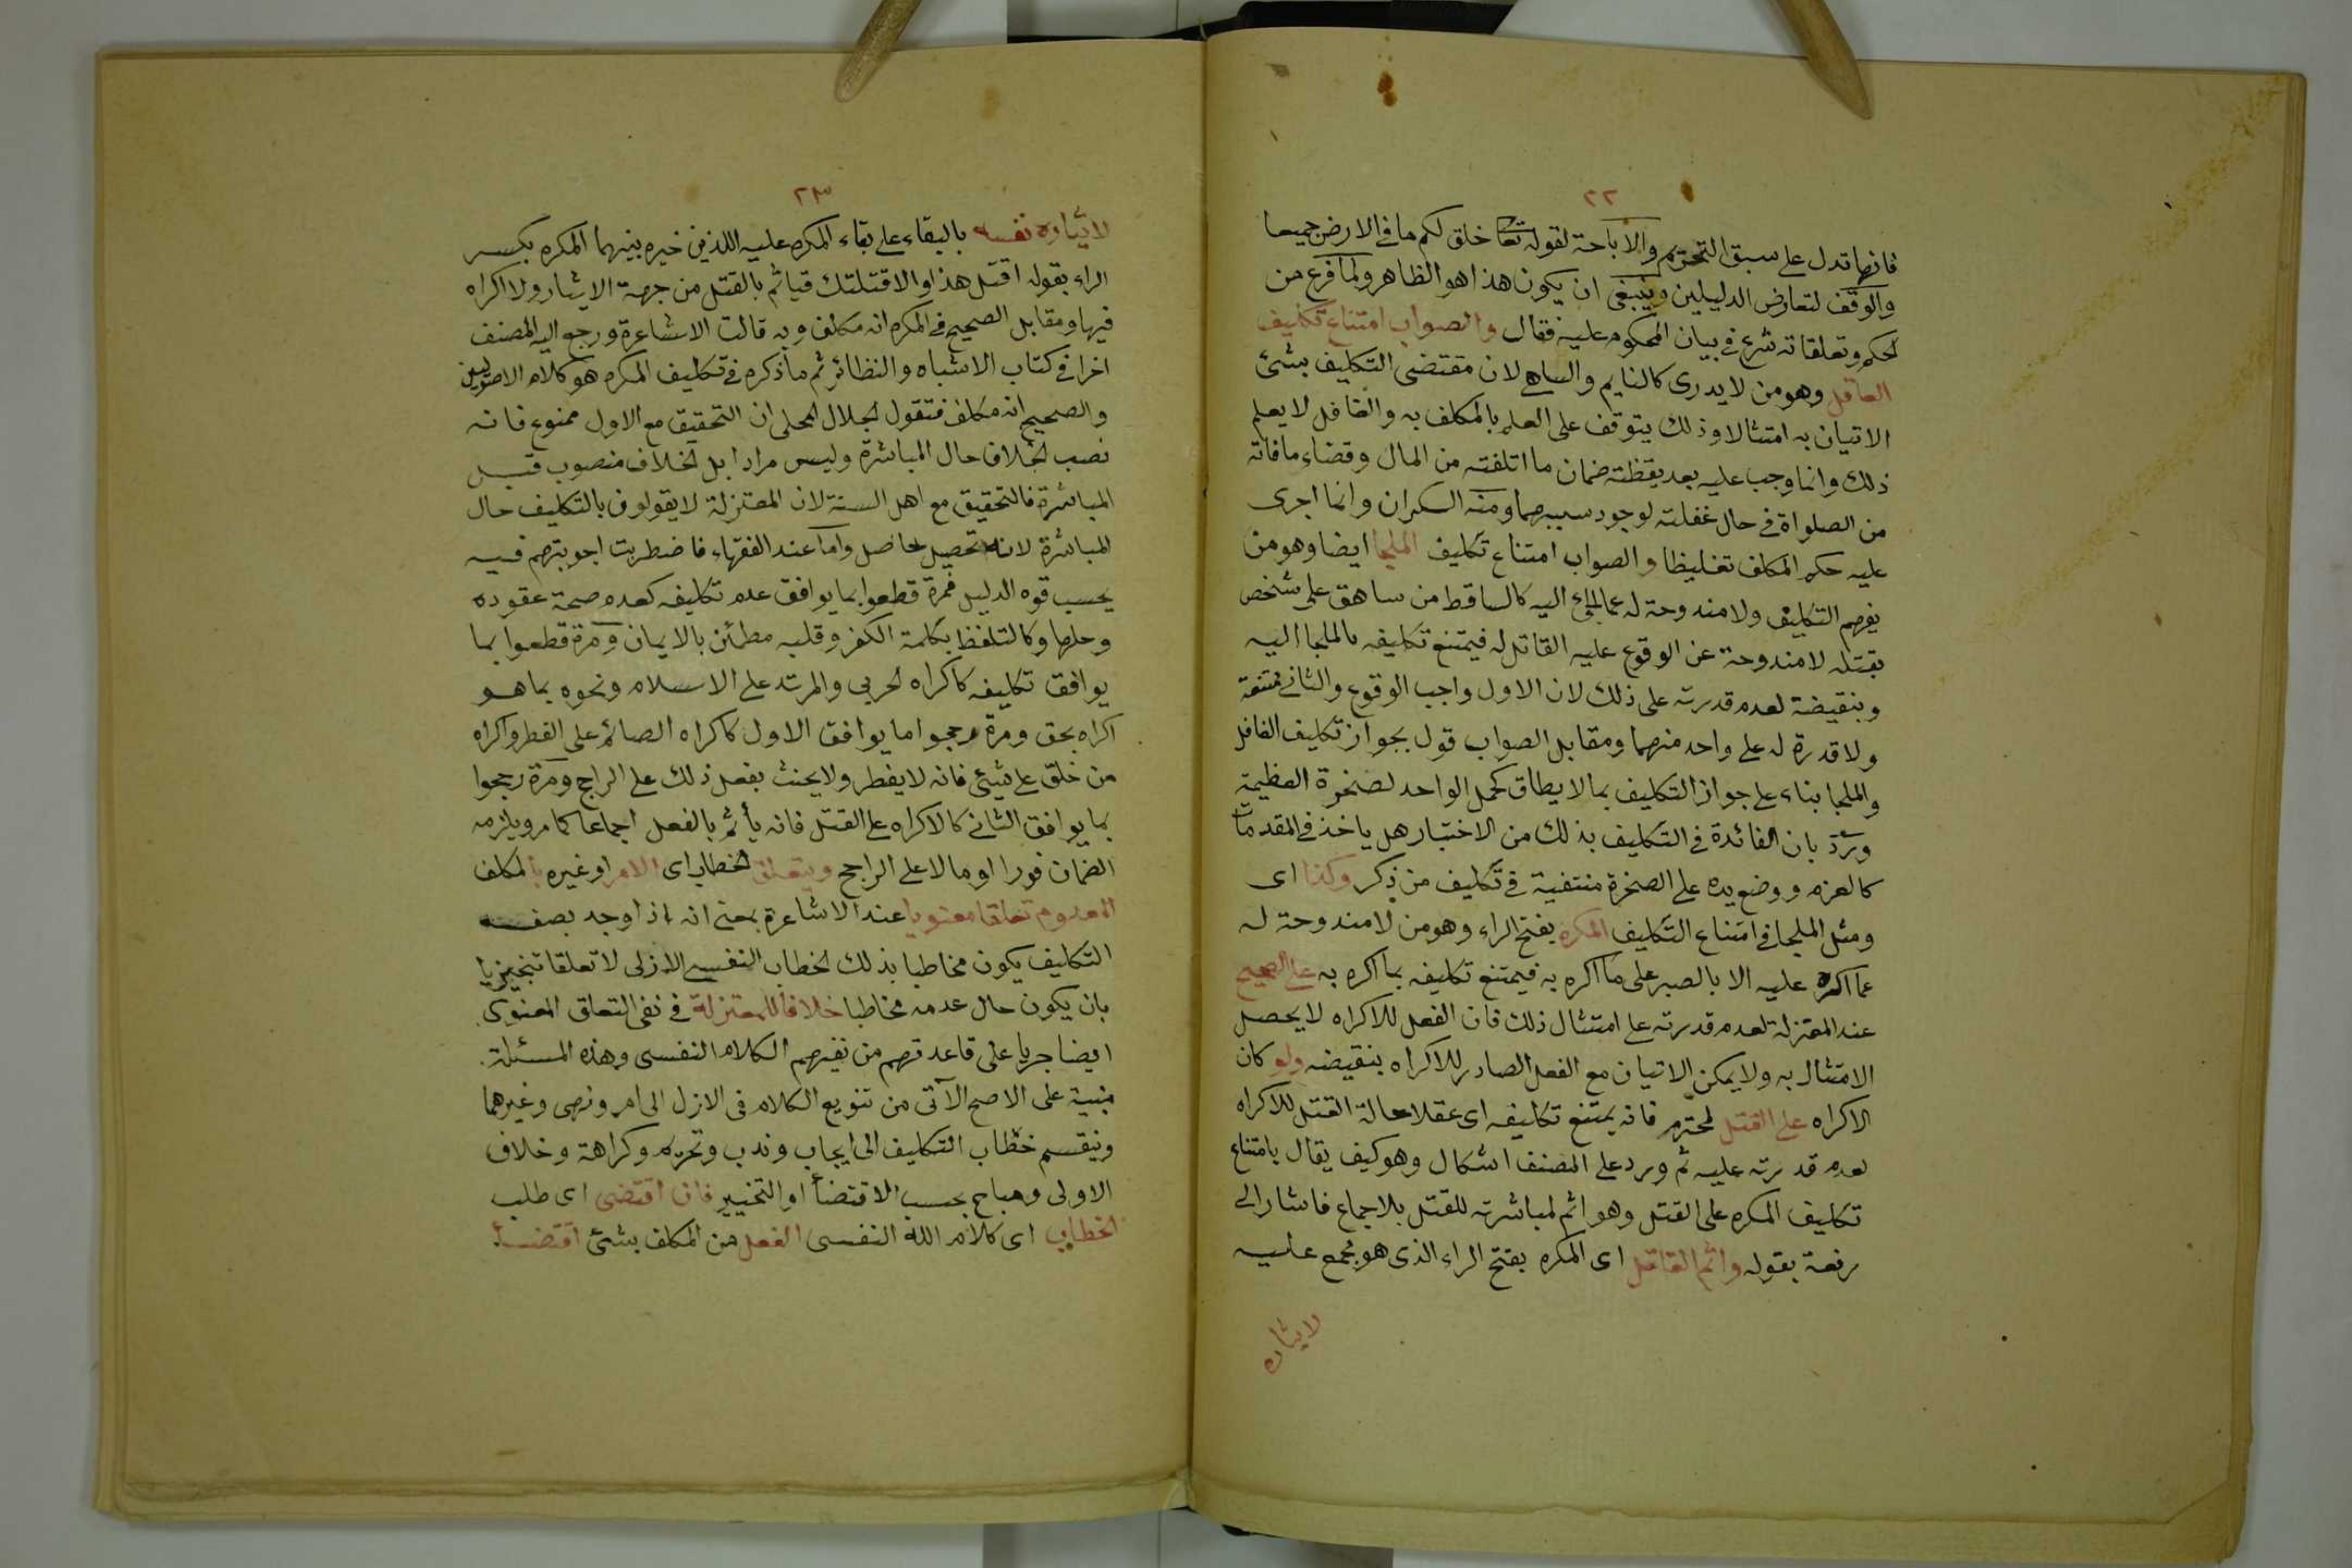 ٢٢
فانها تدل على سبق التحريم والاباحة لقوله تعا خلق لكم ما في الارض جميعا
والوقف لتعارض الدليلين وينبغي ان يكون هذا هو الظاهر ولما فرغ من
الحكم وتعلقاته شرع في بيان المحكوم عليه فقال والصواب امتناع تكليف
الغافل وهو من لا يدرى كالنايم والساهي لان مقتضى التكليف بشئ
الاتيان به امتثالا وذلك يتوقف على العلم بالمكلف به والغافل لا يعلم
ذلك وانما وجب عليه بعد يقظته ضمان ما اتلفته من المال وقضاء ما فاته
من الصلواة في حال غفلته لوجود سببهما ومنه السكران وانما اجرى
عليه حكم المكلف تغليظا والصواب امتناع تكليف الملجا ايضا وهو من
يفهم التكليف ولا مندوحة له عما الجئ اليه كالساقط من ساهق على شخص
بقتله لا مندوحة عن الوقوع عليه القاتل له فيمتنع تكليفه بالملجا اليه
وبنقيضة لعدم قدرته على ذلك لان الاول واجب الوقوع والثاني ممتنعة
ولا قدرة له على واحد منهما ومقابل الصواب قول بجواز تكليف الغافل
والملجا بناء على جواز التكليف بما لا يطاق كحمل الواحد لصخرة العظيمة
وردّ بان الفائدة في التكليف بذلك من الاختبار هل ياخذ في المقدمات
كالعزم ووضع يده على الصخرة منتفية في تكليف من ذكر وكذا اى
ومثل الملجا في امتناع التكليف المكره بفتح الراء وهو من لا مندوحة له
عما اكره عليه الا بالصبر على ما اكره به فيمتنع تكليفه بما اكره به على الصحيح
عند المعتزلة لعدم قدرته على امتثال ذلك فان الفعل للاكراه لا يحصل
الامتثال به ولا يمكن الاتيان مع الفعل الصادر للاكراه بنقيضه ولو كان
الاكراه على القتل لمحترم فانه يمتنع تكليفه اى عقلا حالة القتل للاكراه
لعدم قدرته عليه ثم ورد على المصنف اشكال وهو كيف يقال بامتناع
تكليف المكره على القتل وهو اثم لمباشرته للقتل بلاجماع فاشار الى
رفعة بقوله واثم القاتل اى المكره بفتح الراء الذى هو مجمع عليه
لايثاره
٢٣
لايثاره نفسه بالبقاء على بقاء المكره عليه اللذين خيره بينهما المكره بكسر
الراء بقوله اقتل هذا والا قتلتك فياثم بالقتل من جهة الايثار ولا اكراه
فيها ومقابل الصحيح في المكره انه مكلف وبه قالت الاشاعرة ورجع اليه المصنف
اخرا في كتاب الاشباه والنظائر ثم ما ذكره في تكليف المكره هو كلام الاصوليين
والصحيح انه مكلف فتقول الجلال المحلى ان التحقيق مع الاول ممنوع فانه
نصب الخلاف حال المباشرة وليس مرادا بل الخلاف منصوب قبل
المباشرة فالتحقيق مع اهل السنة لان المعتزلة لا يقولون بالتكليف حال
المباشرة لانه تحصيل حاصل واما عند الفقهاء فاضطربت اجوبتهم فيه
بحسب قوه الدليل فمرة قطعوا بما يوافق عدم تكليفه كعدم صحة عقوده
وحلها وكالتلفظ بكلمة الكفر وقلبه مطمئن بالايمان ومرة قطعوا بما
يوافق تكليفه كاكراه الحربى والمرتد على الاسلام ونحوه بما هو
اكراه بحق ومرة رجحوا ما يوافق الاول كاكراه الصائم على الفطر واكراه
من خلق على شئ فانه لا يفطر ولا يحنث بفعل ذلك على الراجح ومرة رجحوا
بما يوافق الثاني كالاكراه على القتل فانه يأثم بالفعل اجماعا كما مر ويلزمه
الضمان فورا او مالا على الراجح ويتعلق الخطاب اى الامر او غيره بالمكلف
المعدوم تعلقا معنويا عند الاشاعرة بمعنى انه اذا وجد بصفة
التكليف يكون مخاطبا بذلك الخطاب النفسي الازلى لا تعلقا تنجيزيا
بان يكون حال عدمه مخاطبا خلافا للمعتزلة في نفى التعلق المعنوى
ايضا جريا على قاعدتهم من نفيهم الكلام النفسى وهذه المسئلة
مبنية على الاصح الآتى من تنويع الكلام فى الازل الى امر ونهى وغيرهما
وينقسم خطاب التكليف الى ايجاب وندب وتحريم وكراهة وخلاف
الاولى ومباح بحسب الاقتضأ او التخيير فان اقتضى اى طلب
الخطاب اى كلام الله النفسى الفعل من المكلف بشئ اقتضأ